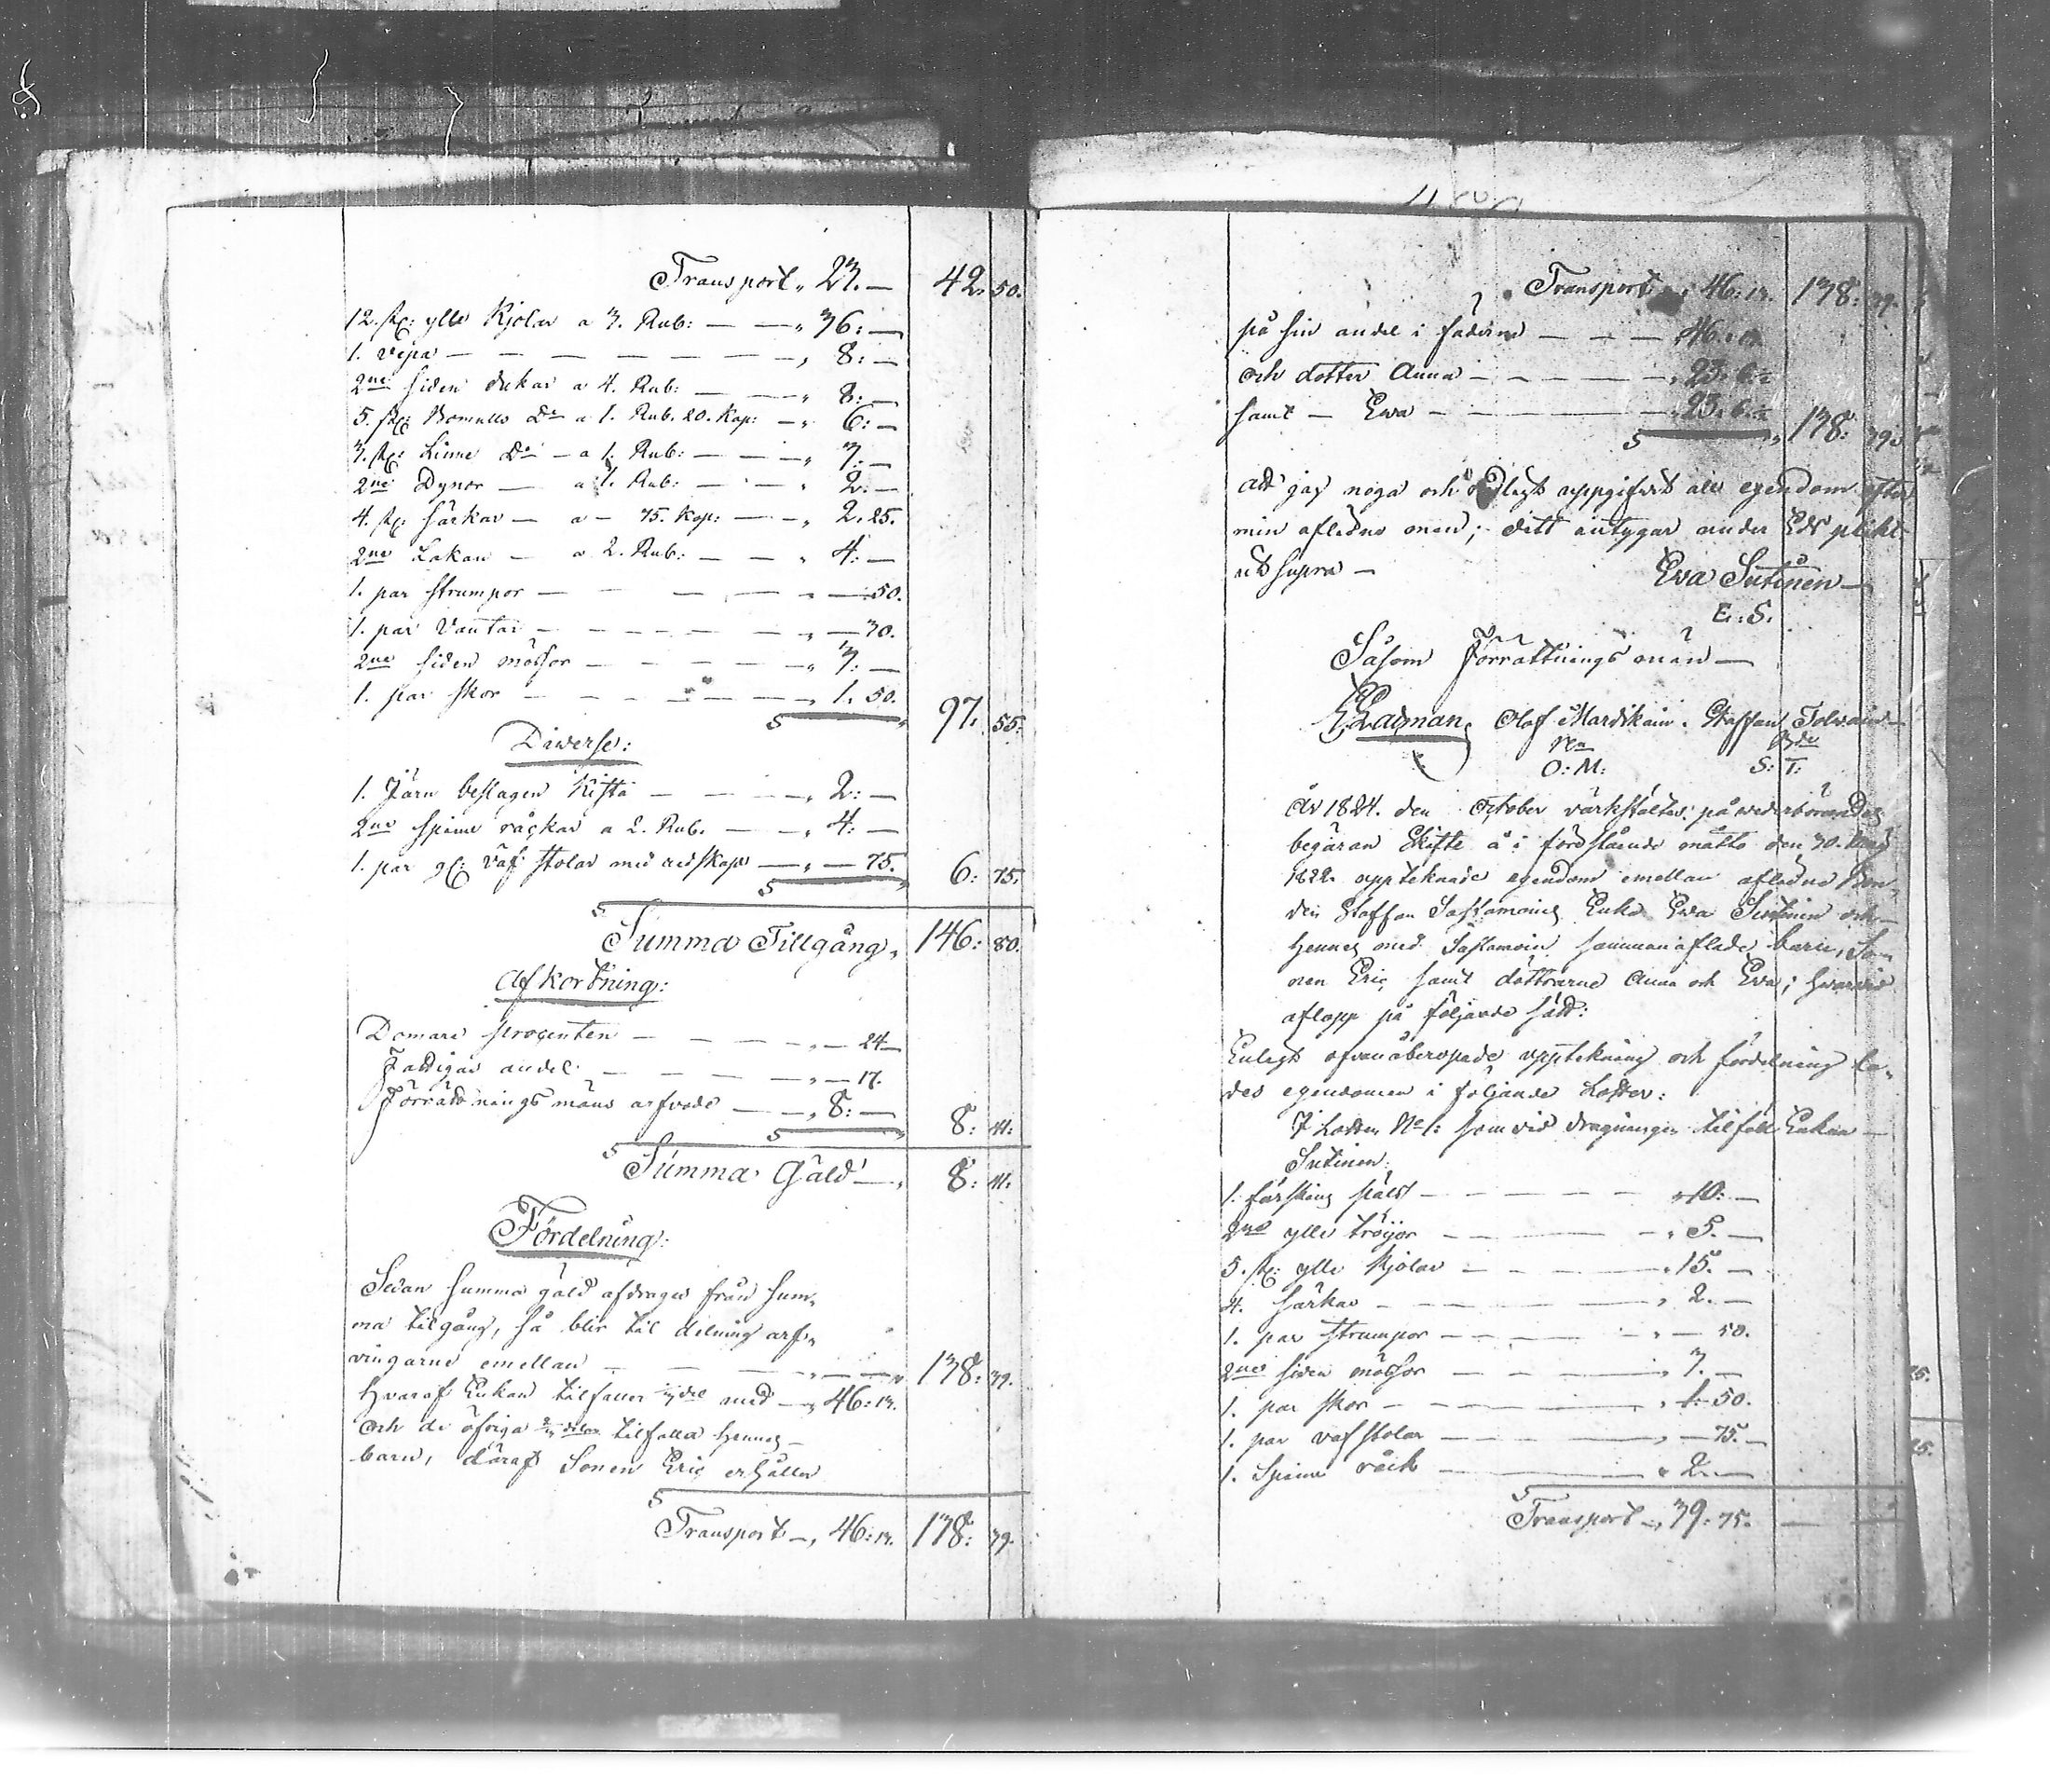 Transport „ 23. — 42. 50.
12. st: ylle Kjolar a 3. Rub: — — „ 36: —
1. vepa — — — — — — — „ 8: —
2ne siden dukar a 4. Rub: — — „ 8: —
5. st: Bomulls Do a 1. Rub. 20. Kop: — „ 6: —
3. st: Linne Do — a 1. Rub: — — — „ 3: —
2ne Dynor — a 1. Rub: — — — „ 2: —
4. st: särkar — a — 75. Kop: — — „ 2. 25.
2ne Lakan — a 2. Rub: — — „ 4: —
1. par strumpor — — — — — „ — 50.
1. par Vantar — — — — — „ — 30.
2ne siden mössor — — — — — „ 3: —
1. par skor — — — — — „ 1. 50.
S 97. 55.
Diverse:
1. Järn beslagen Kista — — — „ 2: —
2ne spinn råckar a 2. Rub. — — „ 4: —
1. par gl: väf stolar med redskap — „ — 75. 6: 75.
S
S Summa Tillgång „ 146: 80.
Afkortning:
Domare procenten — — — — „ — 24 —
Fattigas andel — — — — „ — 17.
Förrättnings mäns arfvode — — „ 8: — 8: 41:
S
S Summa Gäld — „ 8: 41.
Fördelning:
Sedan summa gäld afdrages från sum„
ma tilgång, så blir til delning arf„
vingarne emellan — — — „ — — 138: 39.
Hvaraf Enkan tilfaller 1/3 del med — „ 46: 13.
och de öfriga 2/3 delar tilfalla Hennes —
barn, däraf Sonen Eric erhåller
S Transport — „ 46: 13. 138: 39.
Transport „ 46: 13. 138: 39.
på sin andel i — — — 46: 13.
och dotter Anna — — — — — „ 23: 6 1/2
samt — Ewa — — — — — „ 23: 6 1/2
S „ 138: 39.
att jag noga och redligt uppgifvit all egendom efter
min aflidne man; ditt intygar under Eds plikt
ut supra —
Eva Sutinen —
E: S.
Såsom Förrättnings män —
Olof Mardikain. Staffan Tolvain —
O: M: S: T:
År 1824. den October värkstältes på wederbörandes
begäran Skifte å i förestående måtto den 30.
1822. upptecknade egendom emellan aflidne Bon„
den Staffan Sastamoines Enka Ewa Sutinen och —
Hennes med Sastamoin sammanaflade barn, So„
nen Eric samt döttrarne Anna och Eva; hvarvid
aflopp på följande sätt:
Enligt ofvanåberopade uptekning och fördelning la„
des egendomen i följande Lotter:
I Lotten No 1: som vid dragningen tilföll Enkan —
Sutinen:
1. fårskins päls — — — — — „ 10: —
2ne ylle tröyor — — — — „ 5. —
5. st: ylle Kjolar — — — — „ 15. —
4. särkar — — — — — „ 2. —
1. par strumpor — — — — „ — 50.
2ne siden mössor — — — — „ 3. —
1. par skor — — — — — „ 1. 50.
1. par väfstolar — — — — „ — 75. —
1. Spinn råck — — — — „ 2. —
S Transport — „ 39: 75. —